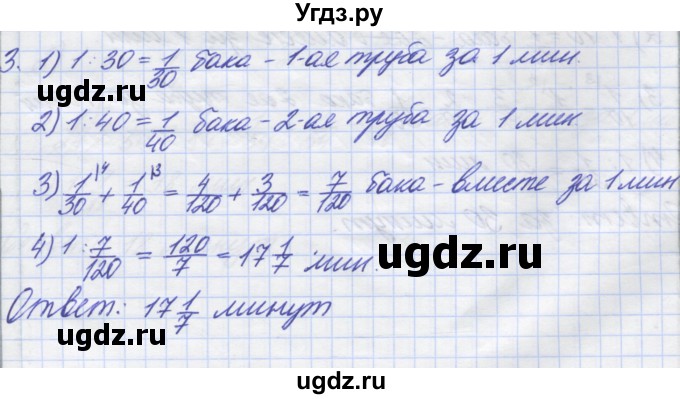 Угдз.ру
3. 1) 1 : 30 = 1/30 бака - 1-ая труба за 1 мин.
ugdz.ru ugdz.ru
2) 1 : 40 = 1/40 бака - 2-ая труба за 1 мин
ugdz.ru
3) 1/30 \4 + 1/40 \3 = 4/120 + 3/120 = 7/120 бака - вместе за 1 мин
ugdz.ru
4) 1 : 7/120 = 120/7 = 17 1/7 мин.
ugdz.ru
Ответ: 17 1/7 минут
ugdz.ru ugdz.ru
ugdz.ru